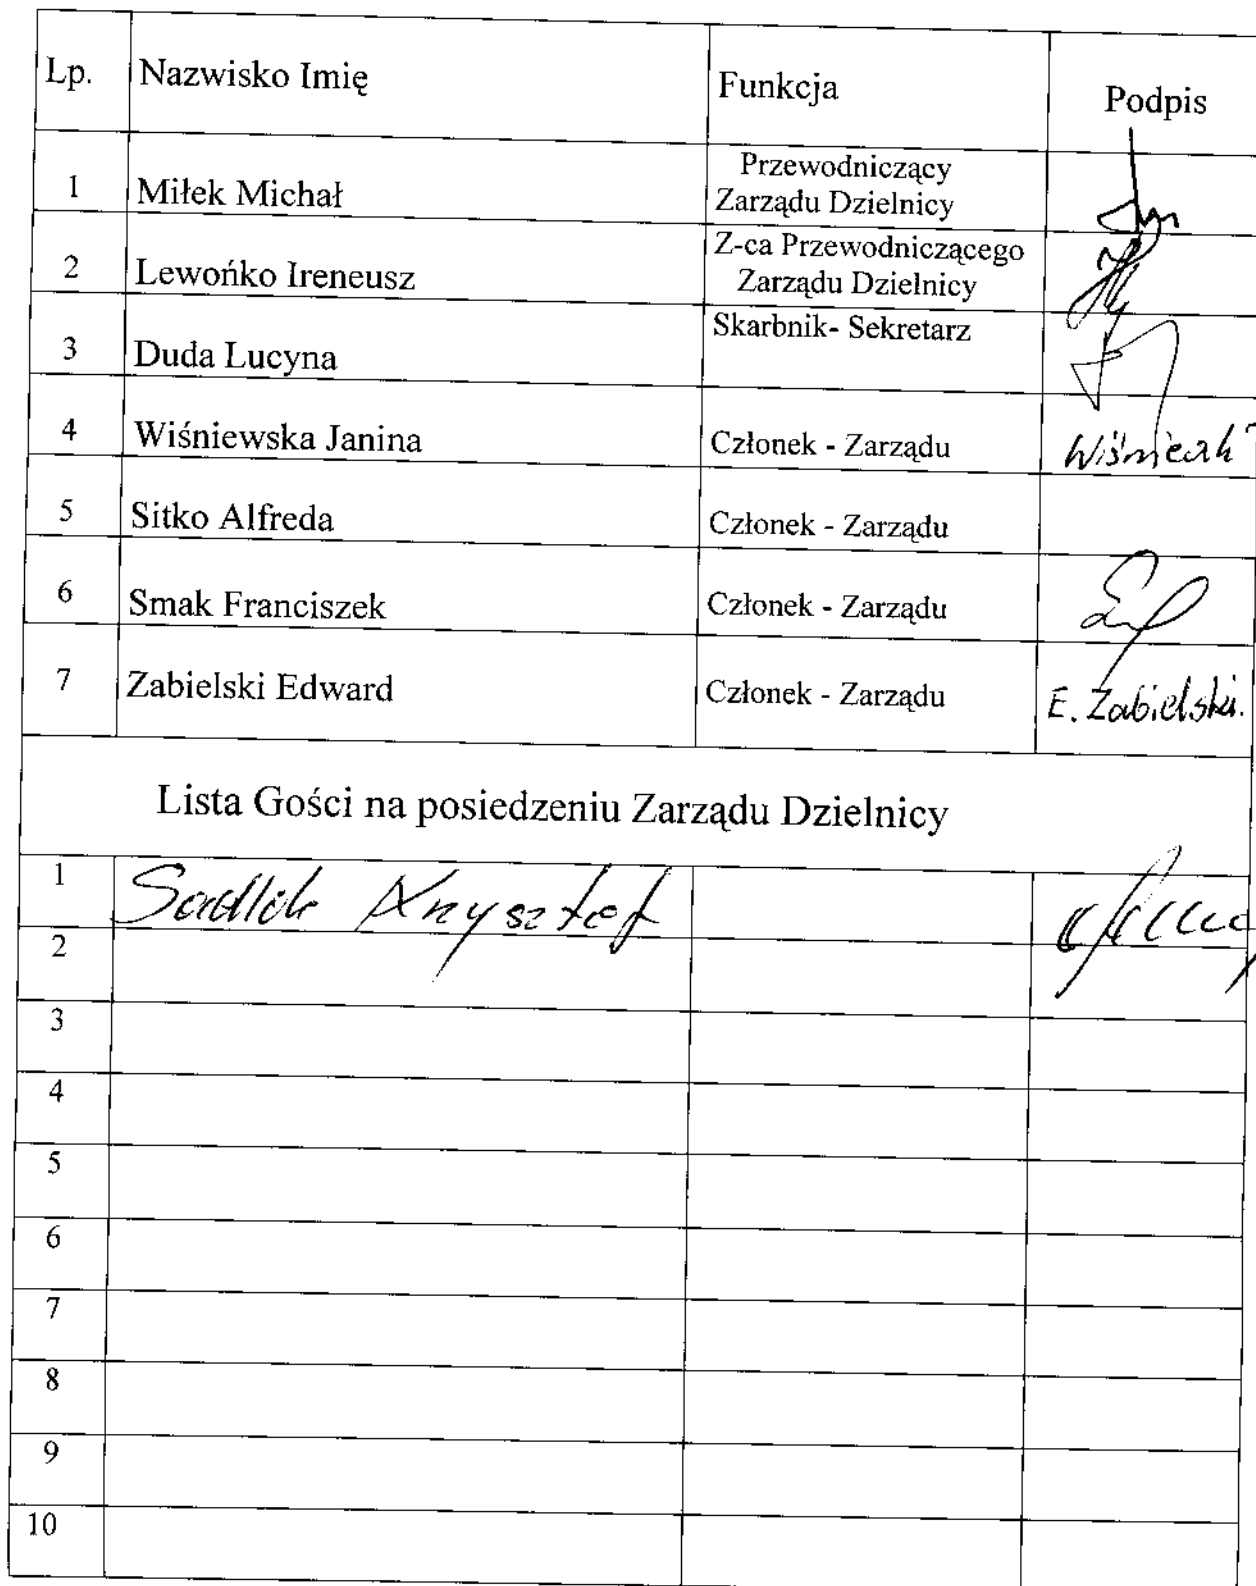 Lp. Nazwisko Imię Funkcja Podpis
1 Miłek Michał Przewodniczący
Zarządu Dzielnicy
2 Lewońko Ireneusz Z-ca Przewodniczącego
Zarządu Dzielnicy
3 Duda Lucyna Skarbnik- Sekretarz
4 Wiśniewska Janina Członek - Zarządu
5 Sitko Alfreda Członek - Zarządu
6 Smak Franciszek Członek - Zarządu
7 Zabielski Edward Członek - Zarządu E. Zabielski.
Lista Gości na posiedzeniu Zarządu Dzielnicy
1 Sadlik Krzysztof
2
3
4
5
6
7
8
9
10